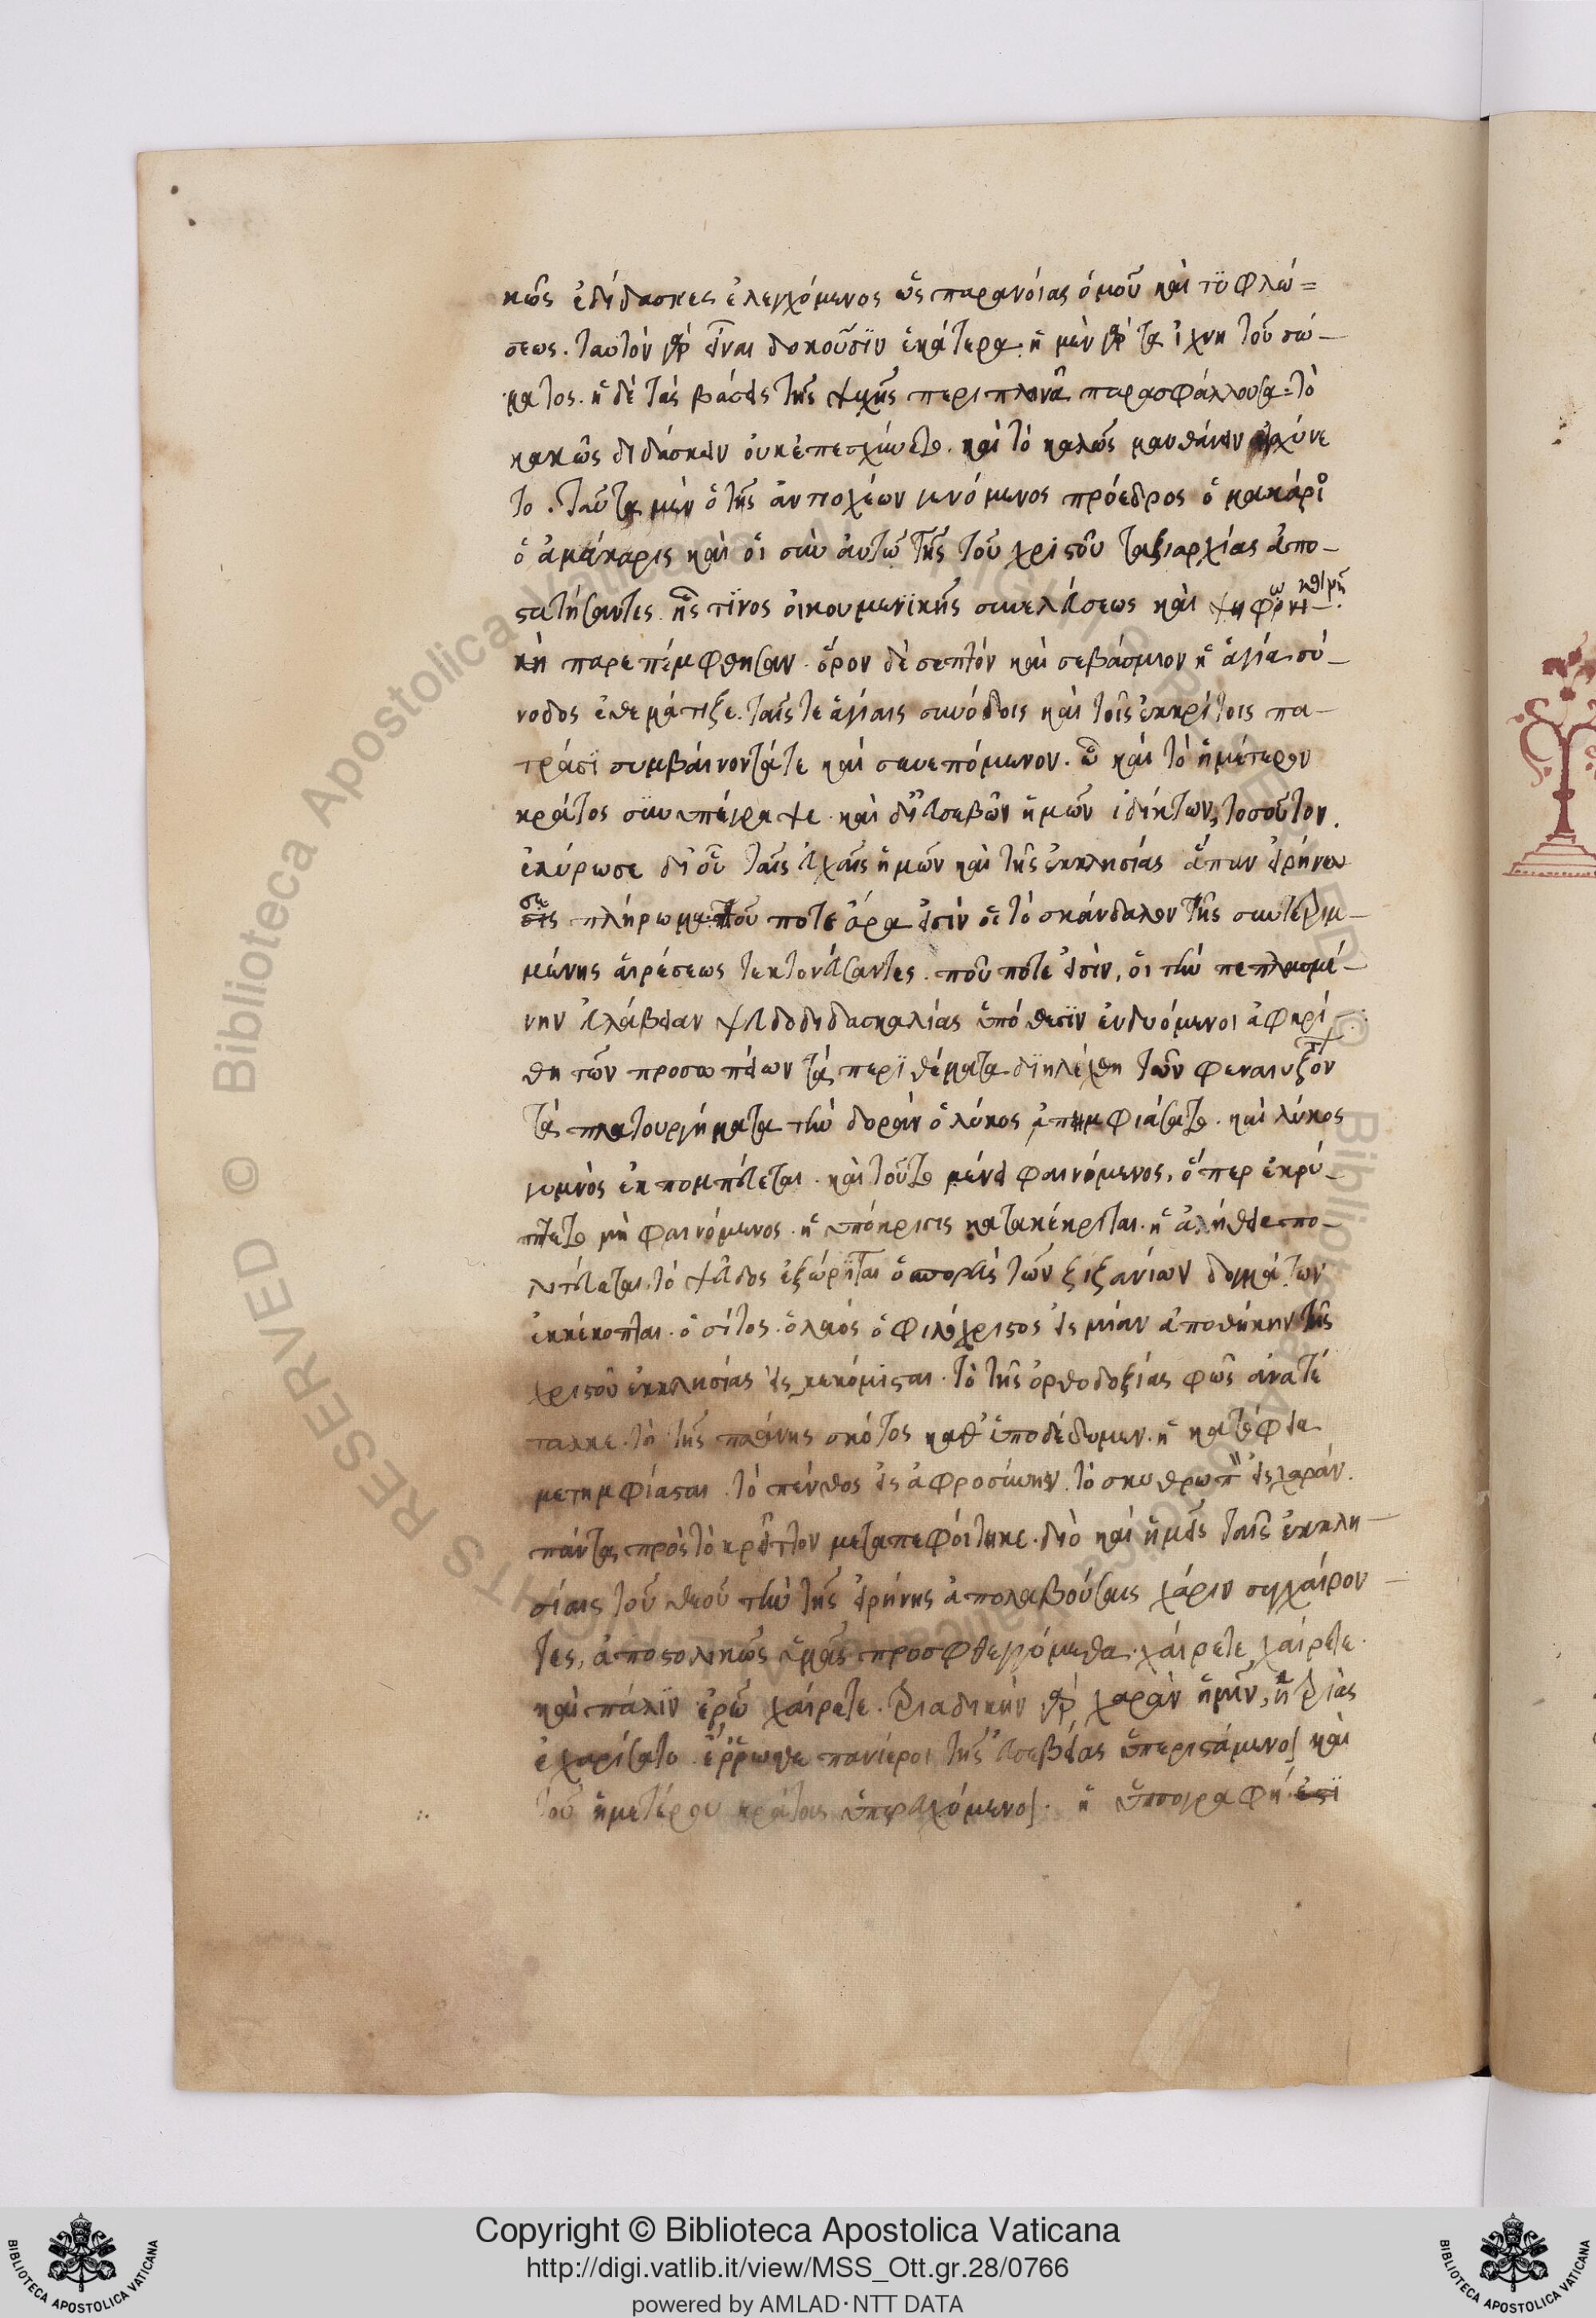 κῶς ἐδίδασκες ἐλεγχόμενος ὢς παρανοίας ὁμοῦ καὶ τυφλώ=
σεως. ταυτὸν γὰρ εἶναι δοκοῦσϊν ἑκάτερα. ἡ μὲν γὰρ τα ἴχνη τοῦ σώ-
ματος. ἡ δὲ τὰς βάσεις τῆς ψυχῆς περιπλανᾶ παρασφάλλουσα. τὸ
κακῶς διδάσκειν οὐκ ἐπεσχύνετο. καὶ τὸ καλῶς μανθάνειν ᾐσχύνε
το. ταῦτα μὲν ὁ τῆς ἀντιοχέων γενόμενος πρόεδρος ὁ μακάρι
ὁ ἀμάκαρις καὶ οἱ σὺν αὐτῶ τῆς τοῦ χριστοῦ ταξιαρχίας ἀπο-
στατήσαντες. ἧς τϊνος οἰκουμενϊκῆς συνελεύσεως καὶ
παρεπέμφθησαν. ὅρον δὲ σεπτὸν καὶ σεβάσμιον ἡ ἁγία σύ-
νοδος ἐθεμάτιξε. ταῖς τε ἁγίαις συνόδοις καὶ τοῖς ἐκκρίτοις πα-
τράσϊ συμβαίνοντά τε καὶ συνεπόμενον. ὦ καὶ τὸ ἡμέτερον
κράτος συνυπέγραψε. καὶ δι' εὐσεβῶν ἡμῶν ἰδίκτων, τοσοῦτον.
ἐκύρωσε δι' οὗ ταῖς εὐχαῖς ἡμῶν καὶ τῆς ἐκκλησίας ἅπαν εἰρήνευ
σε πλήρωμα. ποῦ ποτε ἄρα εἰσὶν οἱ τὸ σκάνδαλον τῆς συντετριμ-
μένης αἱρέσεως τεκτονεύσαντες. ποῦ ποτε εἰσὶν, οἱ τὴν πεπλασμέ-
νην εὐλάβειαν ψευδοδιδασκαλίας ὑπόθεσϊν ἐνδυόμενοι ἀφηρέ-
θη τῶν προσωπείων τὰ περϊθέματα διηλέχθη τῶν
τὰ πλατουργήματα τὴν δορὰν ὁ λύκος ἀπημφιάσατο. καὶ λύκος
γυμνὸς ἐκπομπεύεται. καὶ τοῦτο μένει φαινόμενος, ὅπερ ἐκρύ-
πτετο μὴ φαινόμενος. ἡ ὑπόκρισις κατακέκριται. ἡ ἀλήθεια πο-
λιτεύεται. τὸ ψεῦδος ἐξώρϊσται ὁ σπορεὺς τῶν ζιζανίων δογμάτων
ἐκκέκοπται. ὁ σίτος. ὁ λαός ὁ φιλόχριστος εἰς μίαν ἀποθήκην τῆς
χριστοῦ ἐκκλησίας εἰσκεκόμισται. τὸ τῆς ὀρθοδοξίας φῶς ἀνατέ
ταλκε. τὸ τῆς πλάνης σκότος καθ' ὑποδέδυμεν. ἡ κατήφεια
μετημφίασται. τὸ πένθος εἰς ἀφροσύνην. τὸ σκυθρωπὸν εἰς χαράν.
πάντα πρὸς τὸ κρεῖττον μεταπεφοίτηκε. διὸ καὶ ἡμεῖς ταῖς ἐκκλη-
σίαις τοῦ θεοῦ τὴν τῆς εἰρήνης ἀπολαβούσαις χάριν συγχαίρον-
τες, ἀποστολικῶς ὑμᾶς προσφθεγγόμεθα. χαίρετε, χαίρετε.
καὶ πάλϊν ἐρῶ χαίρετε. τριαδικὴν γὰρ χαρὰν ἡμῖν, ἡ τριὰς
ἐχαρίσατο. ἔῤῥωσθε πανίεροι τῆς εὐσεβείας ὑπεριστάμενοι καὶ
τοῦ ἡμετέρου κράτους ὑπερευχόμενοι. ἡ ὑπογραφή
Copyright © Biblioteca Apostolica Vaticana
http://digi.vatlib.it/view/MSS_Ott.gr.28/0766
powered by AMLAD·NTT DATA